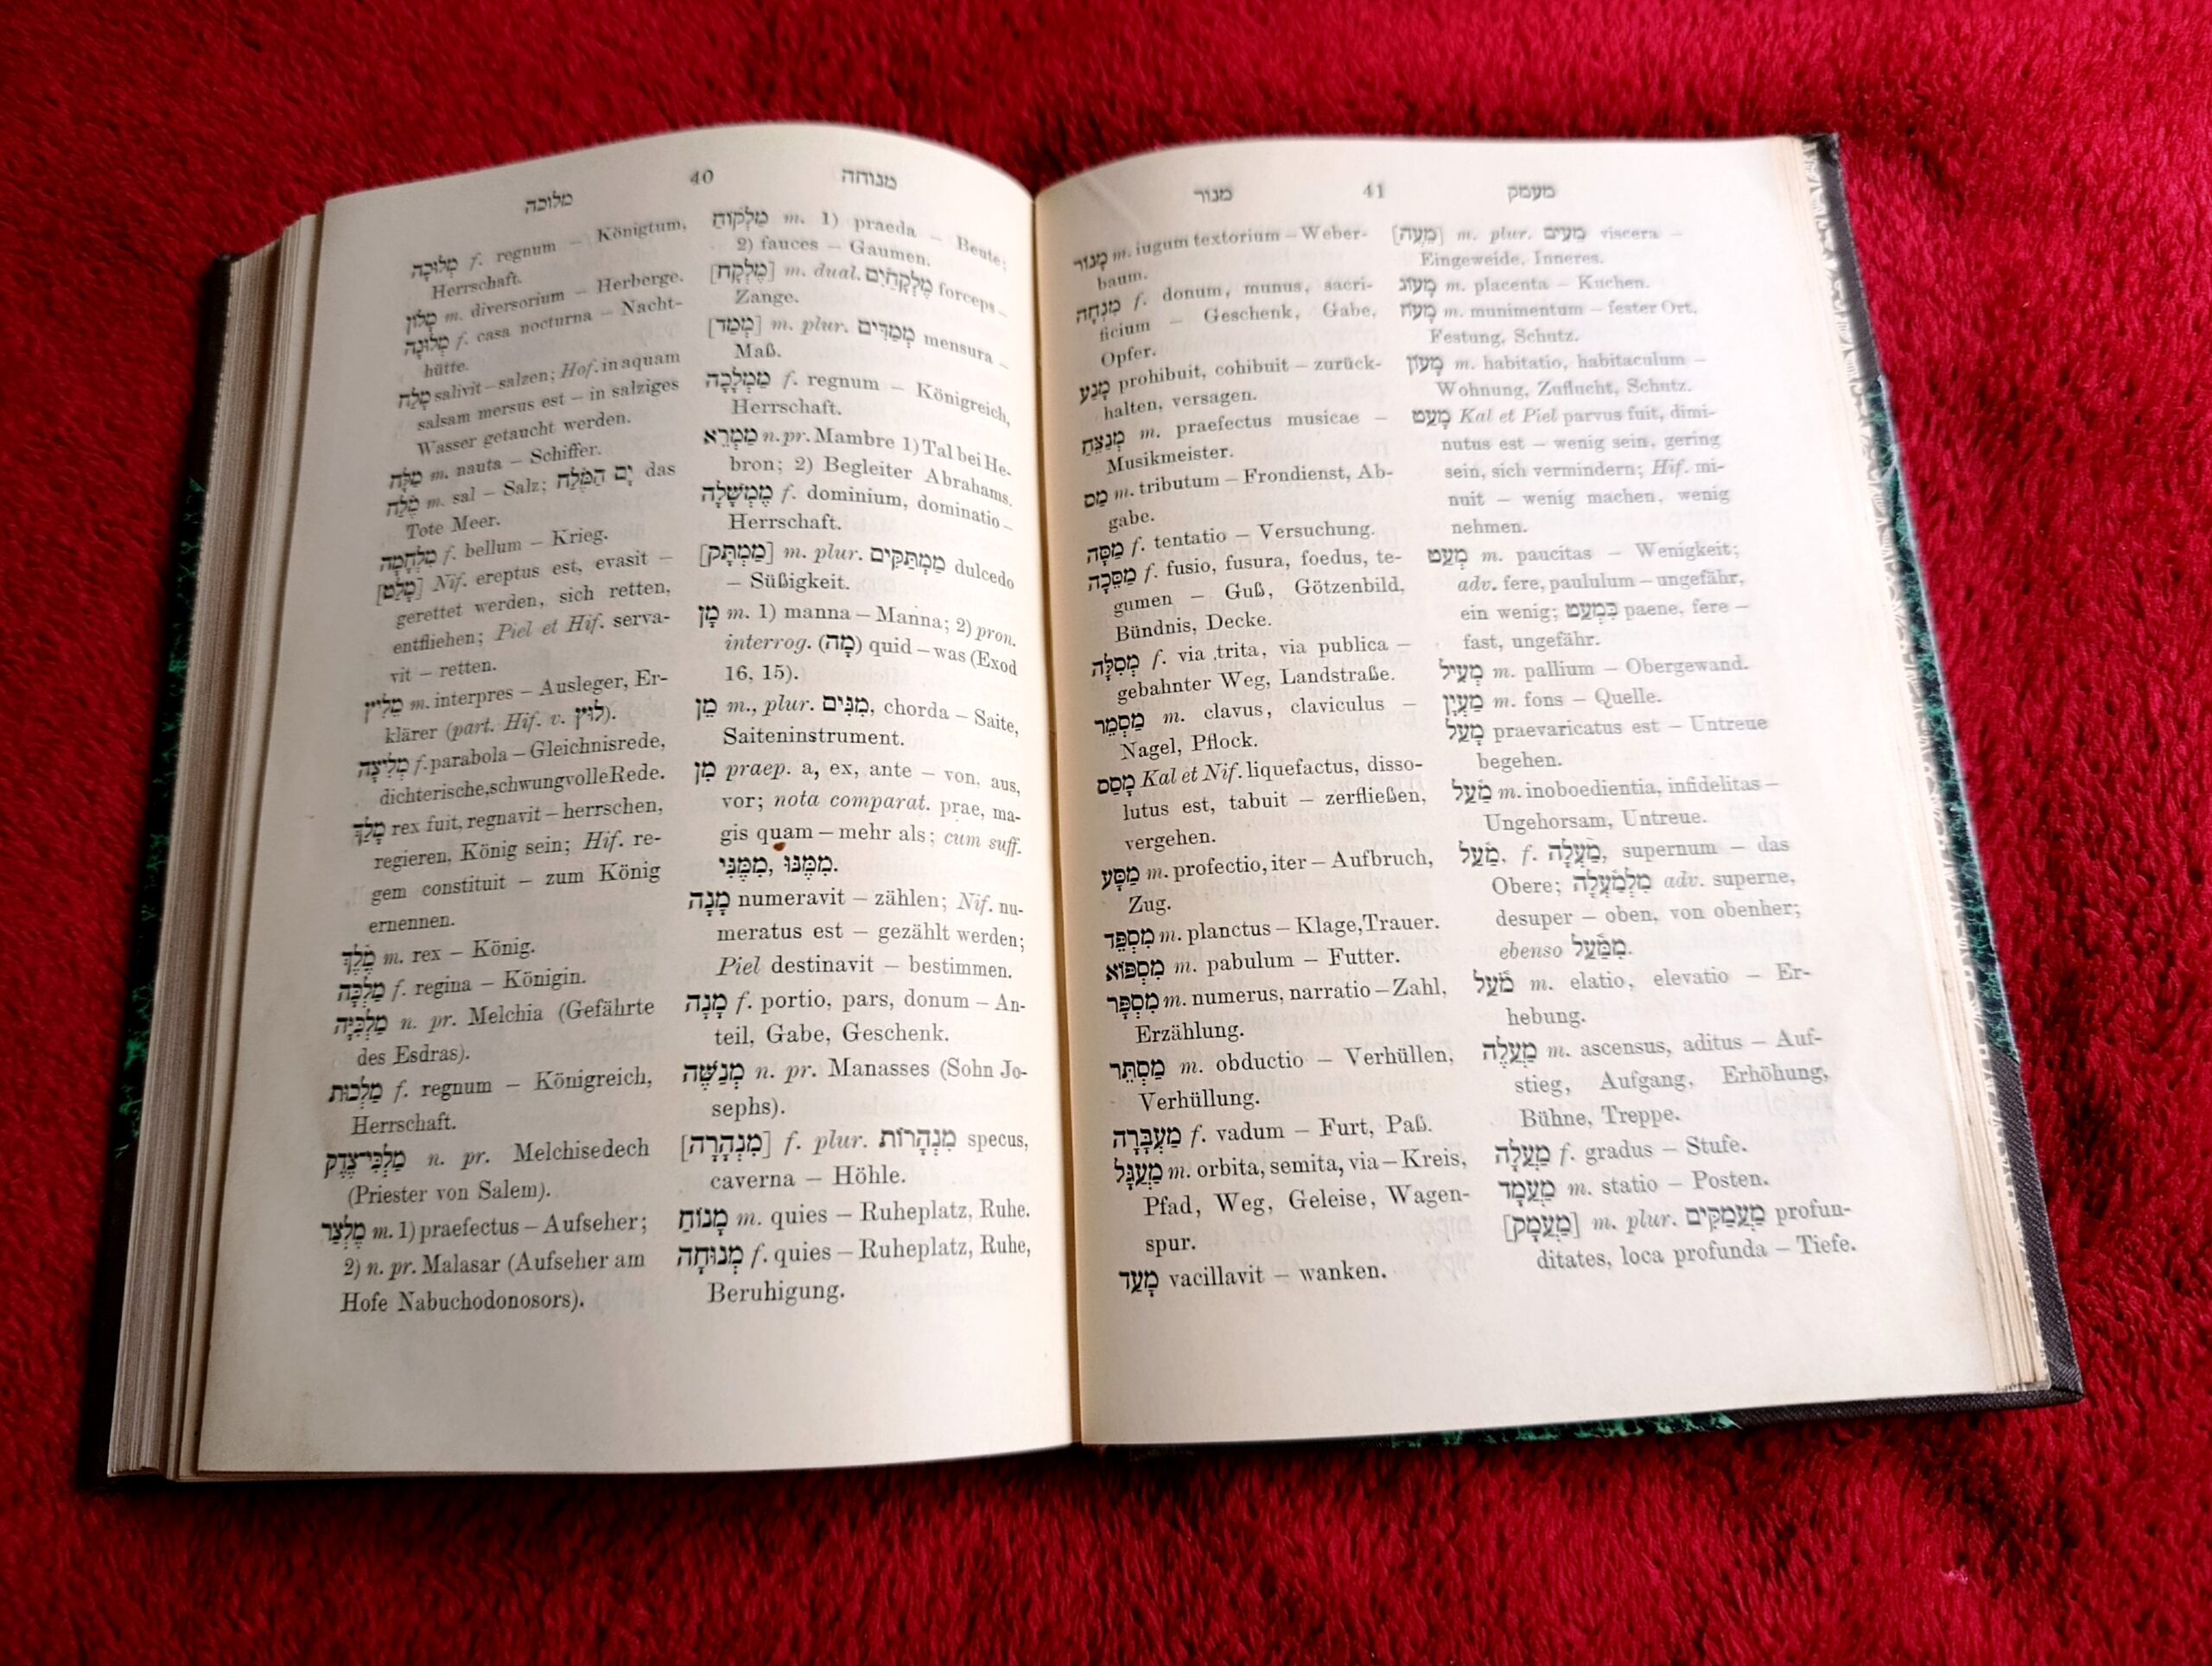 מלוכה 40 מנוחה
מְלוּכָה f. regnum – Königtum,
Herrschaft.
מָלוֹן m. diversorium – Herberge.
מְלוּנָה f. casa nocturna – Nacht-
hütte.
מָלַח salivit – salzen; Hof. in aquam
salsam mersus est – in salziges
Wasser getaucht werden.
מַלָּח m. nauta – Schiffer.
מֶלַח m. sal – Salz; יָם הַמֶּלַח das
Tote Meer.
מִלְחָמָה f. bellum – Krieg.
[מָלַט] Nif. ereptus est, evasit –
gerettet werden, sich retten,
entfliehen; Piel et Hif. serva-
vit – retten.
מֵלִיץ m. interpres – Ausleger, Er-
klärer (part. Hif. v. לוּץ).
מְלִיצָה f. parabola – Gleichnisrede,
dichterische, schwungvolle Rede.
מָלַךְ rex fuit, regnavit – herrschen,
regieren, König sein; Hif. re-
gem constituit – zum König
ernennen.
מֶלֶךְ m. rex – König.
מַלְכָּה f. regina – Königin.
מַלְכִּיָּה n. pr. Melchia (Gefährte
des Esdras).
מַלְכוּת f. regnum – Königreich,
Herrschaft.
מַלְכִּי־צֶדֶק n. pr. Melchisedech
(Priester von Salem).
מֶלְצַר m. 1) praefectus – Aufseher;
2) n. pr. Malasar (Aufseher am
Hofe Nabuchodonosors).
מַלְקוֹחַ m. 1) praeda – Beute;
2) fauces – Gaumen.
[מֶלְקָח] m. dual. מֶלְקָחַיִם forceps –
Zange.
[מְמַד] m. plur. מְמַדִּים mensura –
Maß.
מַמְלָכָה f. regnum – Königreich,
Herrschaft.
מַמְרֵא n. pr. Mambre 1) Tal bei He-
bron; 2) Begleiter Abrahams.
מֶמְשָׁלָה f. dominium, dominatio –
Herrschaft.
[מַמְתָּק] m. plur. מַמְתַּקִּים dulcedo
– Süßigkeit.
מָן m. 1) manna – Manna; 2) pron.
interrog. (מָה) quid – was (Exod
16, 15).
מֵן m., plur. מִנִּים, chorda – Saite,
Saiteninstrument.
מִן praep. a, ex, ante – von, aus,
vor; nota comparat. prae, ma-
gis quam – mehr als; cum suff.
מִמֶּנִּי, מִמֶּנּוּ.
מָנָה numeravit – zählen; Nif. nu-
meratus est – gezählt werden;
Piel destinavit – bestimmen.
מָנָה f. portio, pars, donum – An-
teil, Gabe, Geschenk.
מְנַשֶּׁה n. pr. Manasses (Sohn Jo-
sephs).
[מִנְהָרָה] f. plur. מִנְהָרוֹת specus,
caverna – Höhle.
מָנוֹחַ m. quies – Ruheplatz, Ruhe.
מְנוּחָה f. quies – Ruheplatz, Ruhe,
Beruhigung.
מנור 41 מעמק
מָנוֹר m. iugum textorium – Weber-
baum.
מִנְחָה f. donum, munus, sacri-
ficium – Geschenk, Gabe,
Opfer.
מָנַע prohibuit, cohibuit – zurück-
halten, versagen.
מְנַצֵּחַ m. praefectus musicae –
Musikmeister.
מַס m. tributum – Frondienst, Ab-
gabe.
מַסָּה f. tentatio – Versuchung.
מַסֵּכָה f. fusio, fusura, foedus, te-
gumen – Guß, Götzenbild,
Bündnis, Decke.
מְסִלָּה f. via trita, via publica –
gebahnter Weg, Landstraße.
מַסְמֵר m. clavus, claviculus –
Nagel, Pflock.
מָסַס Kal et Nif. liquefactus, disso-
lutus est, tabuit – zerfließen,
vergehen.
מַסָּע m. profectio, iter – Aufbruch,
Zug.
מִסְפֵּד m. planctus – Klage, Trauer.
מִסְפּוֹא m. pabulum – Futter.
מִסְפָּר m. numerus, narratio – Zahl,
Erzählung.
מַסְתֵּר m. obductio – Verhüllen,
Verhüllung.
מַעְבָּרָה f. vadum – Furt, Paß.
מַעְגָּל m. orbita, semita, via – Kreis,
Pfad, Weg, Geleise, Wagen-
spur.
מָעַד vacillavit – wanken.
[מֵעֶה] m. plur. מֵעִים viscera –
Eingeweide, Inneres.
מָעוֹג m. placenta – Kuchen.
מָעוֹז m. munimentum – fester Ort,
Festung, Schutz.
מָעוֹן m. habitatio, habitaculum –
Wohnung, Zuflucht, Schutz.
מָעַט Kal et Piel parvus fuit, dimi-
nutus est – wenig sein, gering
sein, sich vermindern; Hif. mi-
nuit – wenig machen, wenig
nehmen.
מְעַט m. paucitas – Wenigkeit;
adv. fere, paululum – ungefähr,
ein wenig; כִּמְעַט paene, fere –
fast, ungefähr.
מְעִיל m. pallium – Obergewand.
מַעְיָן m. fons – Quelle.
מָעַל praevaricatus est – Untreue
begehen.
מַעַל m. inoboedientia, infidelitas –
Ungehorsam, Untreue.
מַעַל, f. מַעְלָה, supernum – das
Obere; מִלְמַעְלָה adv. superne,
desuper – oben, von obenher;
ebenso מִמַּעַל.
מֹעַל m. elatio, elevatio – Er-
hebung.
מַעֲלֶה m. ascensus, aditus – Auf-
stieg, Aufgang, Erhöhung,
Bühne, Treppe.
מַעֲלָה f. gradus – Stufe.
מַעֲמָד m. statio – Posten.
[מַעֲמָק] m. plur. מַעֲמַקִּים profun-
ditates, loca profunda – Tiefe.